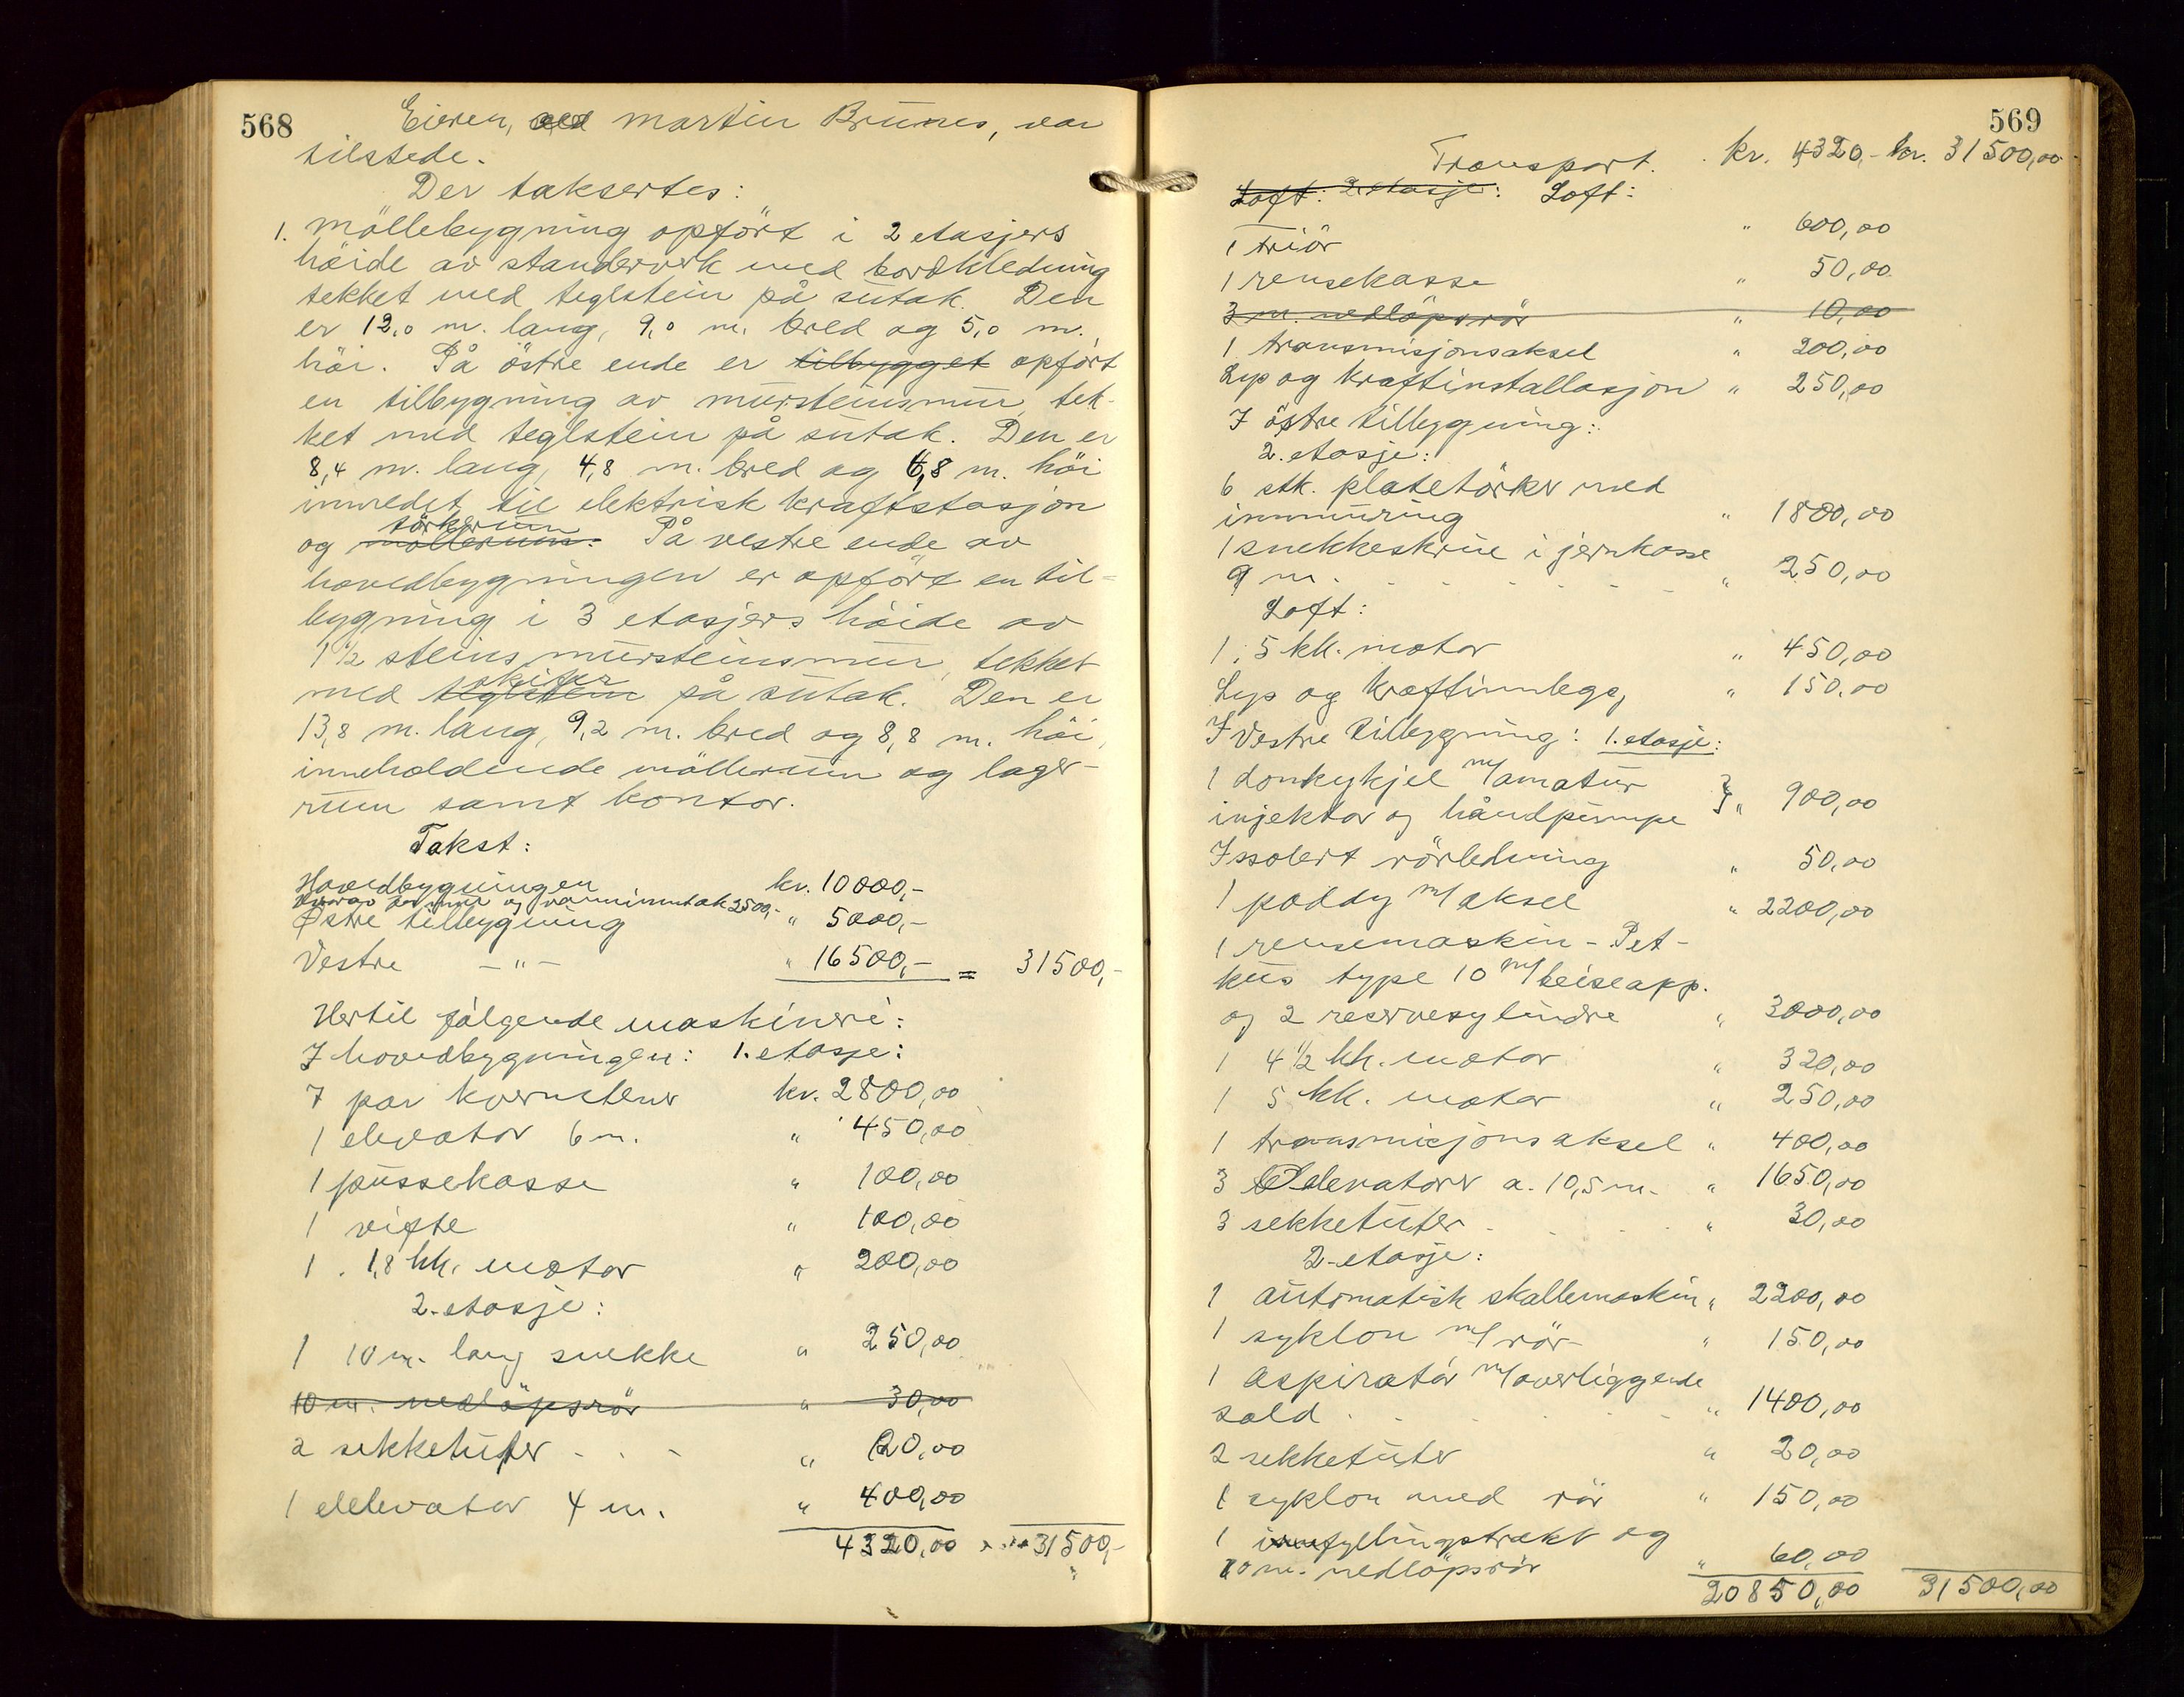 568
Eieren, Martin Brunes, var
tilstede.
Der taksertes:
1. Möllebygning opfört i 2 etasjers
höide av standerverk med bordkledning
tekket med teglstein på sutak. Den
er 12,0 m. lang, 9,0 m. bred og 5,0 m.
höi. På östre ende er tilbygget opfört
en tilbygning av mursteinsmur, tek-
ket med teglstein på sutak. Den er
8,4 m. lang, 4,8 m. bred og 6,8 m. höi
innredet til elektrisk kraftstasjon
törkerum
og möllerum. På vestre ende av
hovedbygningen er opfört en til-
bygning i 3 etasjers höide av
1½ steins mursteinsmur, tekket
skifer
med teglstein på sutak. Den er
13,8 m. lang, 9,2 m. bred og 8,8 m. höi,
inneholdende möllerum og lager-
rum samt kontor.
Takst:
Hovedbygningen kr. 10000,-
Hvorav for mur og vanninntak 2500,-
Østre tilbygning " 5000,-
Vestre -"- " 16500,- = 31500,-
Hertil fölgende maskineri:
I hovedbygningen: 1. etasje:
7 par kvernstener kr. 2800,00
1 elevator 6 m. " 450,00
1 pussekasse " 100,00
1 vifte " 100,00
1. 1,8 hk. motor " 200,00
2. etasje:
1 10 m. lang snekke " 250,00
10 m. nedlöpsrör " 30,00
2 sekketuter - . - " 20,00
1 ellevator 4 m. " 400,00
4320,00 31500,-
569
Transport. kr. 4320,- kr. 31500,00
Loft: 2. etasje: Loft:
1 triör " 600,00
1 rensekasse " 50,00
3 m. nedlöpsrör " 10,00
1 transmisjonsaksel " 200,00
Lys og kraftinstallasjon " 250,00
I östre tilbygning:
2. etasje:
6 stk. platetörker med
innmuring " 1800,00
1 snekkeskrue i jernkasse
9 m. " 250,00
Loft:
1. 5 hk. motor " 450,00
Lys og kraftinnlegg " 150,00
I Vestre tilbygning: 1. etasje:
1 donkykjel m/amatur
injektor og håndpumpe } " 900,00
Issolert rörledning " 50,00
1 poddy m/aksel " 2200,00
1 rensemaskin - Pet-
kus type 10 m/beiseapp.
og 2 reservesylindre " 3000,00
1 4½ hk. motor " 320,00
1 5 hk. motor " 250,00
1 transmisjonsaksel " 400,00
3 Elevatorer a. 10,5 m. " 1650,00
3 sekketuter " 30,00
2. etasje:
1 automatisk skallemaskin " 2200,00
1 syklon m/rör " 150,00
1 aspiratör m/overliggende
sold " 1400,00
2 sekketuter " 20,00
1 syklon med rör " 150,00
1 innfyllingstrakt og
20 m. nedlöpsrör " 60,00
20850,00 31500,00